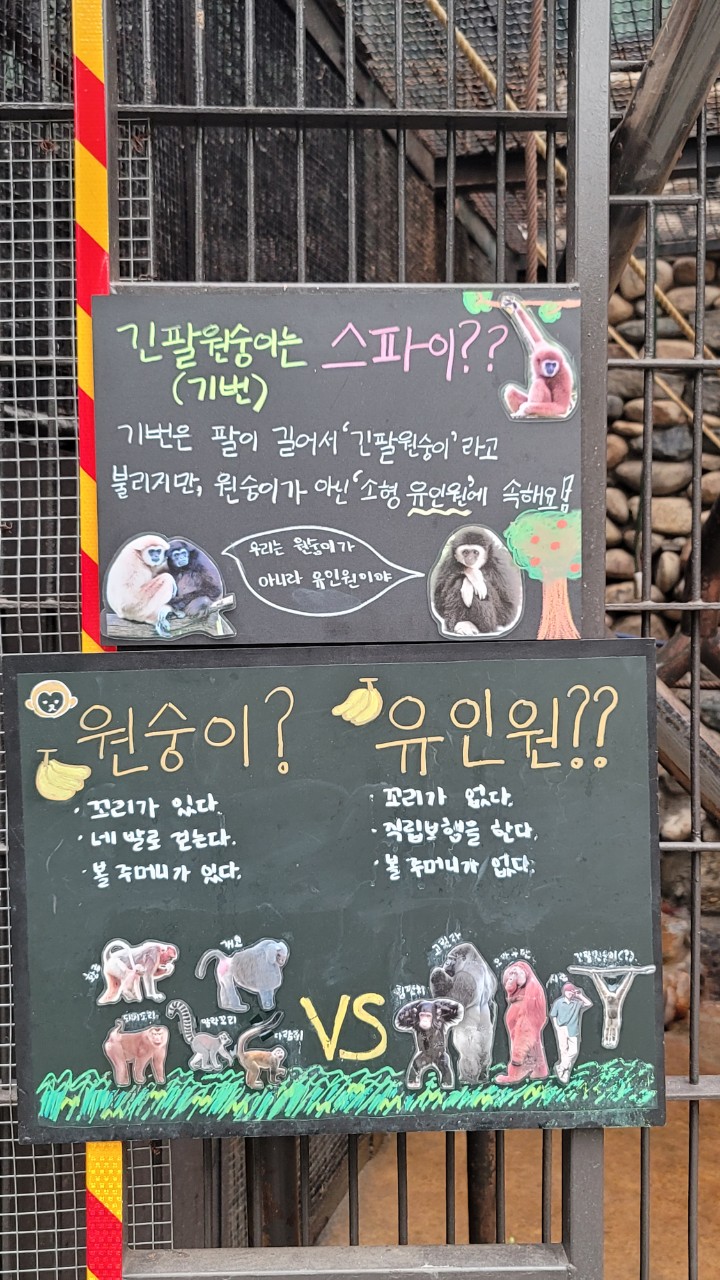 긴팔원숭이는 스파이??
(기번)
기번은 팔이 길어서 '긴팔원숭이' 라고
불리지만, 원숭이가 아닌 '소형 유인원'에 속해요!!
우리는 원숭이가
아니라 유인원이야
원숭이?
· 꼬리가 있다.
· 네 발로 걷는다.
· 볼 주머니가 있다.
유인원??
· 꼬리가 없다.
· 직립보행을 한다.
· 볼 주머니가 없다.
개코
돼지꼬리
알락꼬리
다람쥐
VS
침팬지
고릴라
오랑우탄
사람
긴팔원숭이(?)